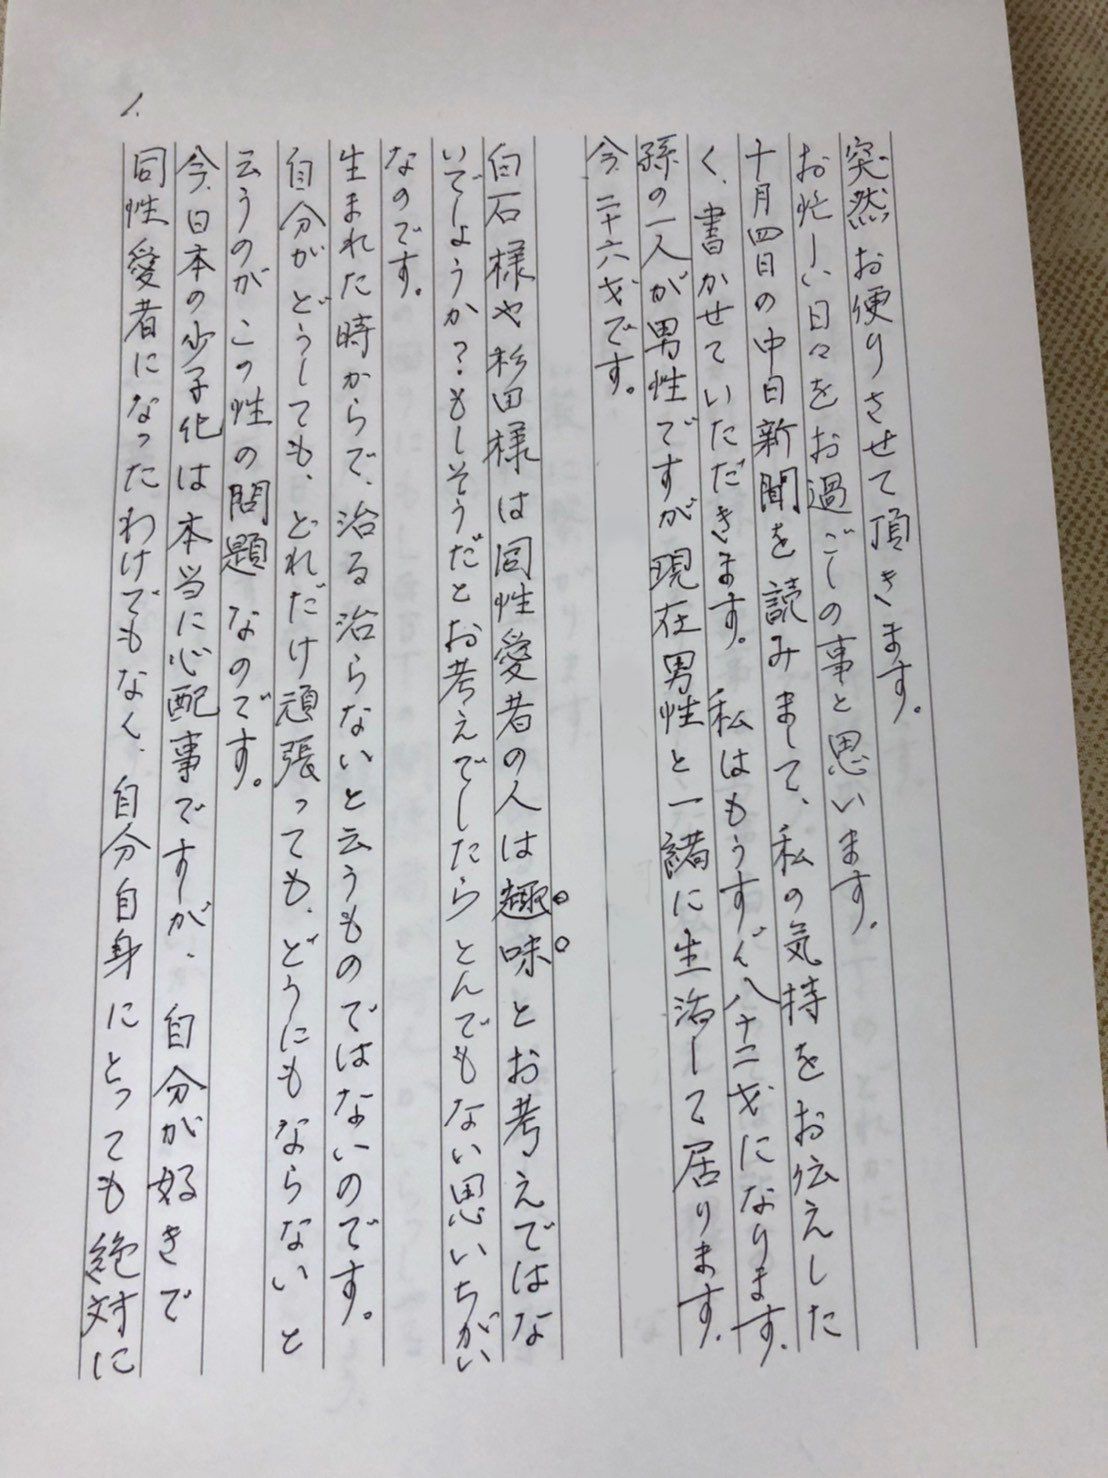 突然お便りさせて頂きます。
お忙しい日々をお過ごしの事と思います。
十月四日の中日新聞を読みまして、私の気持をお伝えした
く、書かせていただきます。私はもうすぐ八十二才になります。
孫の一人が男性ですが現在男性と一緒に生活して居ります。
今、二十六才です。
白石様や杉田様は同性愛者の人は趣味とお考えではな
いでしょうか？もしそうだとお考えでしたらとんでもない思いちがい
なのです。
生まれた時からで、治る治らないと云うものではないのです。
自分がどうしても、どれだけ頑張っても、どうにもならないと
云うのがこの性の問題なのです。
今、日本の少子化は本当に心配事ですが、自分が好きで
同性愛者になったわけでもなく、自分自身にとっても絶対に
1.